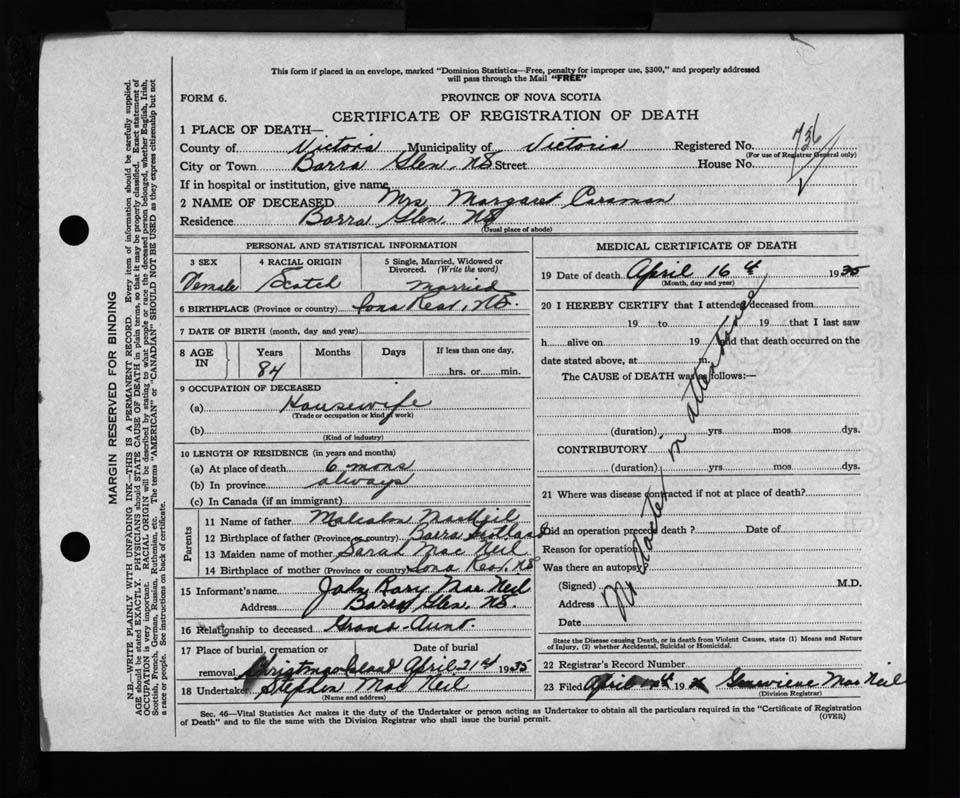 This form if placed in an envelope, marked "Dominion Statistics—Free, penalty for improper use, $300," and properly addressed
will pass through the Mail "FREE"
FORM 6.
PROVINCE OF NOVA SCOTIA
CERTIFICATE OF REGISTRATION OF DEATH
1 PLACE OF DEATH—
County of Victoria Municipality of Victoria Registered No. 736
(For use of Registrar General only)
City or Town Barra Glen. NS Street House No.
If in hospital or institution, give name
2 NAME OF DECEASED Mrs Margaret
Residence Barra Glen, NS
(Usual place of abode)
PERSONAL AND STATISTICAL INFORMATION
3 SEX 4 RACIAL ORIGIN 5 Single, Married, Widowed or Divorced. (Write the word)
Female Scotch Married
6 BIRTHPLACE (Province or country) Iona Rear, N.S.
7 DATE OF BIRTH (month, day and year)
8 AGE IN Years Months Days If less than one day,
84 hrs. or min.
9 OCCUPATION OF DECEASED
(a) Housewife
(Trade or occupation or kind of work)
(b)
(Kind of industry)
10 LENGTH OF RESIDENCE (in years and months)
(a) At place of death 6 mons
(b) In province always
(c) In Canada (if an immigrant)
Parents
11 Name of father Malcolm MacNeil
12 Birthplace of father (Province or country) Barra Scotland
13 Maiden name of mother Sarah Mac Neil
14 Birthplace of mother (Province or country) Iona Rear, NS
15 Informant's name John Rory Mac Neil
Address Barra Glen, NS.
16 Relationship to deceased Grand-Aunt
17 Place of burial, cremation or removal Date of burial
Christmas Island April 21st 1935
18 Undertaker Stephen Mac Neil
(Name and address)
MEDICAL CERTIFICATE OF DEATH
19 Date of death April 16th 1935
(Month, day and year)
20 I HEREBY CERTIFY that I attended deceased from
19 to 19 that I last saw
h alive on 19 and that death occurred on the
date stated above, at m.
The CAUSE of DEATH was as follows:—
(duration) yrs mos dys.
CONTRIBUTORY
(duration) yrs mos dys.
No Doctor in attendance
21 Where was disease contracted if not at place of death?
Did an operation precede death? Date of
Reason for operation
Was there an autopsy
(Signed) M.D.
Address
Date
State the Disease causing Death, or in death from Violent Causes, state (1) Means and Nature
of Injury, (2) whether Accidental, Suicidal or Homicidal.
22 Registrar's Record Number
23 Filed April 19 Genevieve Mac Neil
(Division Registrar)
Sec. 46—Vital Statistics Act makes it the duty of the Undertaker or person acting as Undertaker to obtain all the particulars required in the "Certificate of Registration
of Death" and to file the same with the Division Registrar who shall issue the burial permit.
(OVER)
MARGIN RESERVED FOR BINDING
N.B.—WRITE PLAINLY WITH UNFADING INK—THIS IS A PERMANENT RECORD. Every item of information should be carefully supplied.
AGE should be stated EXACTLY. PHYSICIANS should STATE CAUSE OF DEATH in plain terms, so that it may be properly classified. Exact statement of
OCCUPATION is very important. RACIAL ORIGIN will be described by stating to what people or race the deceased person belonged, whether English, Irish,
Scottish, French, German, Russian, Ruthenian, etc. The terms "AMERICAN" or "CANADIAN" SHOULD NOT BE USED as they express citizenship but not
a race or people. See instructions on back of certificate.